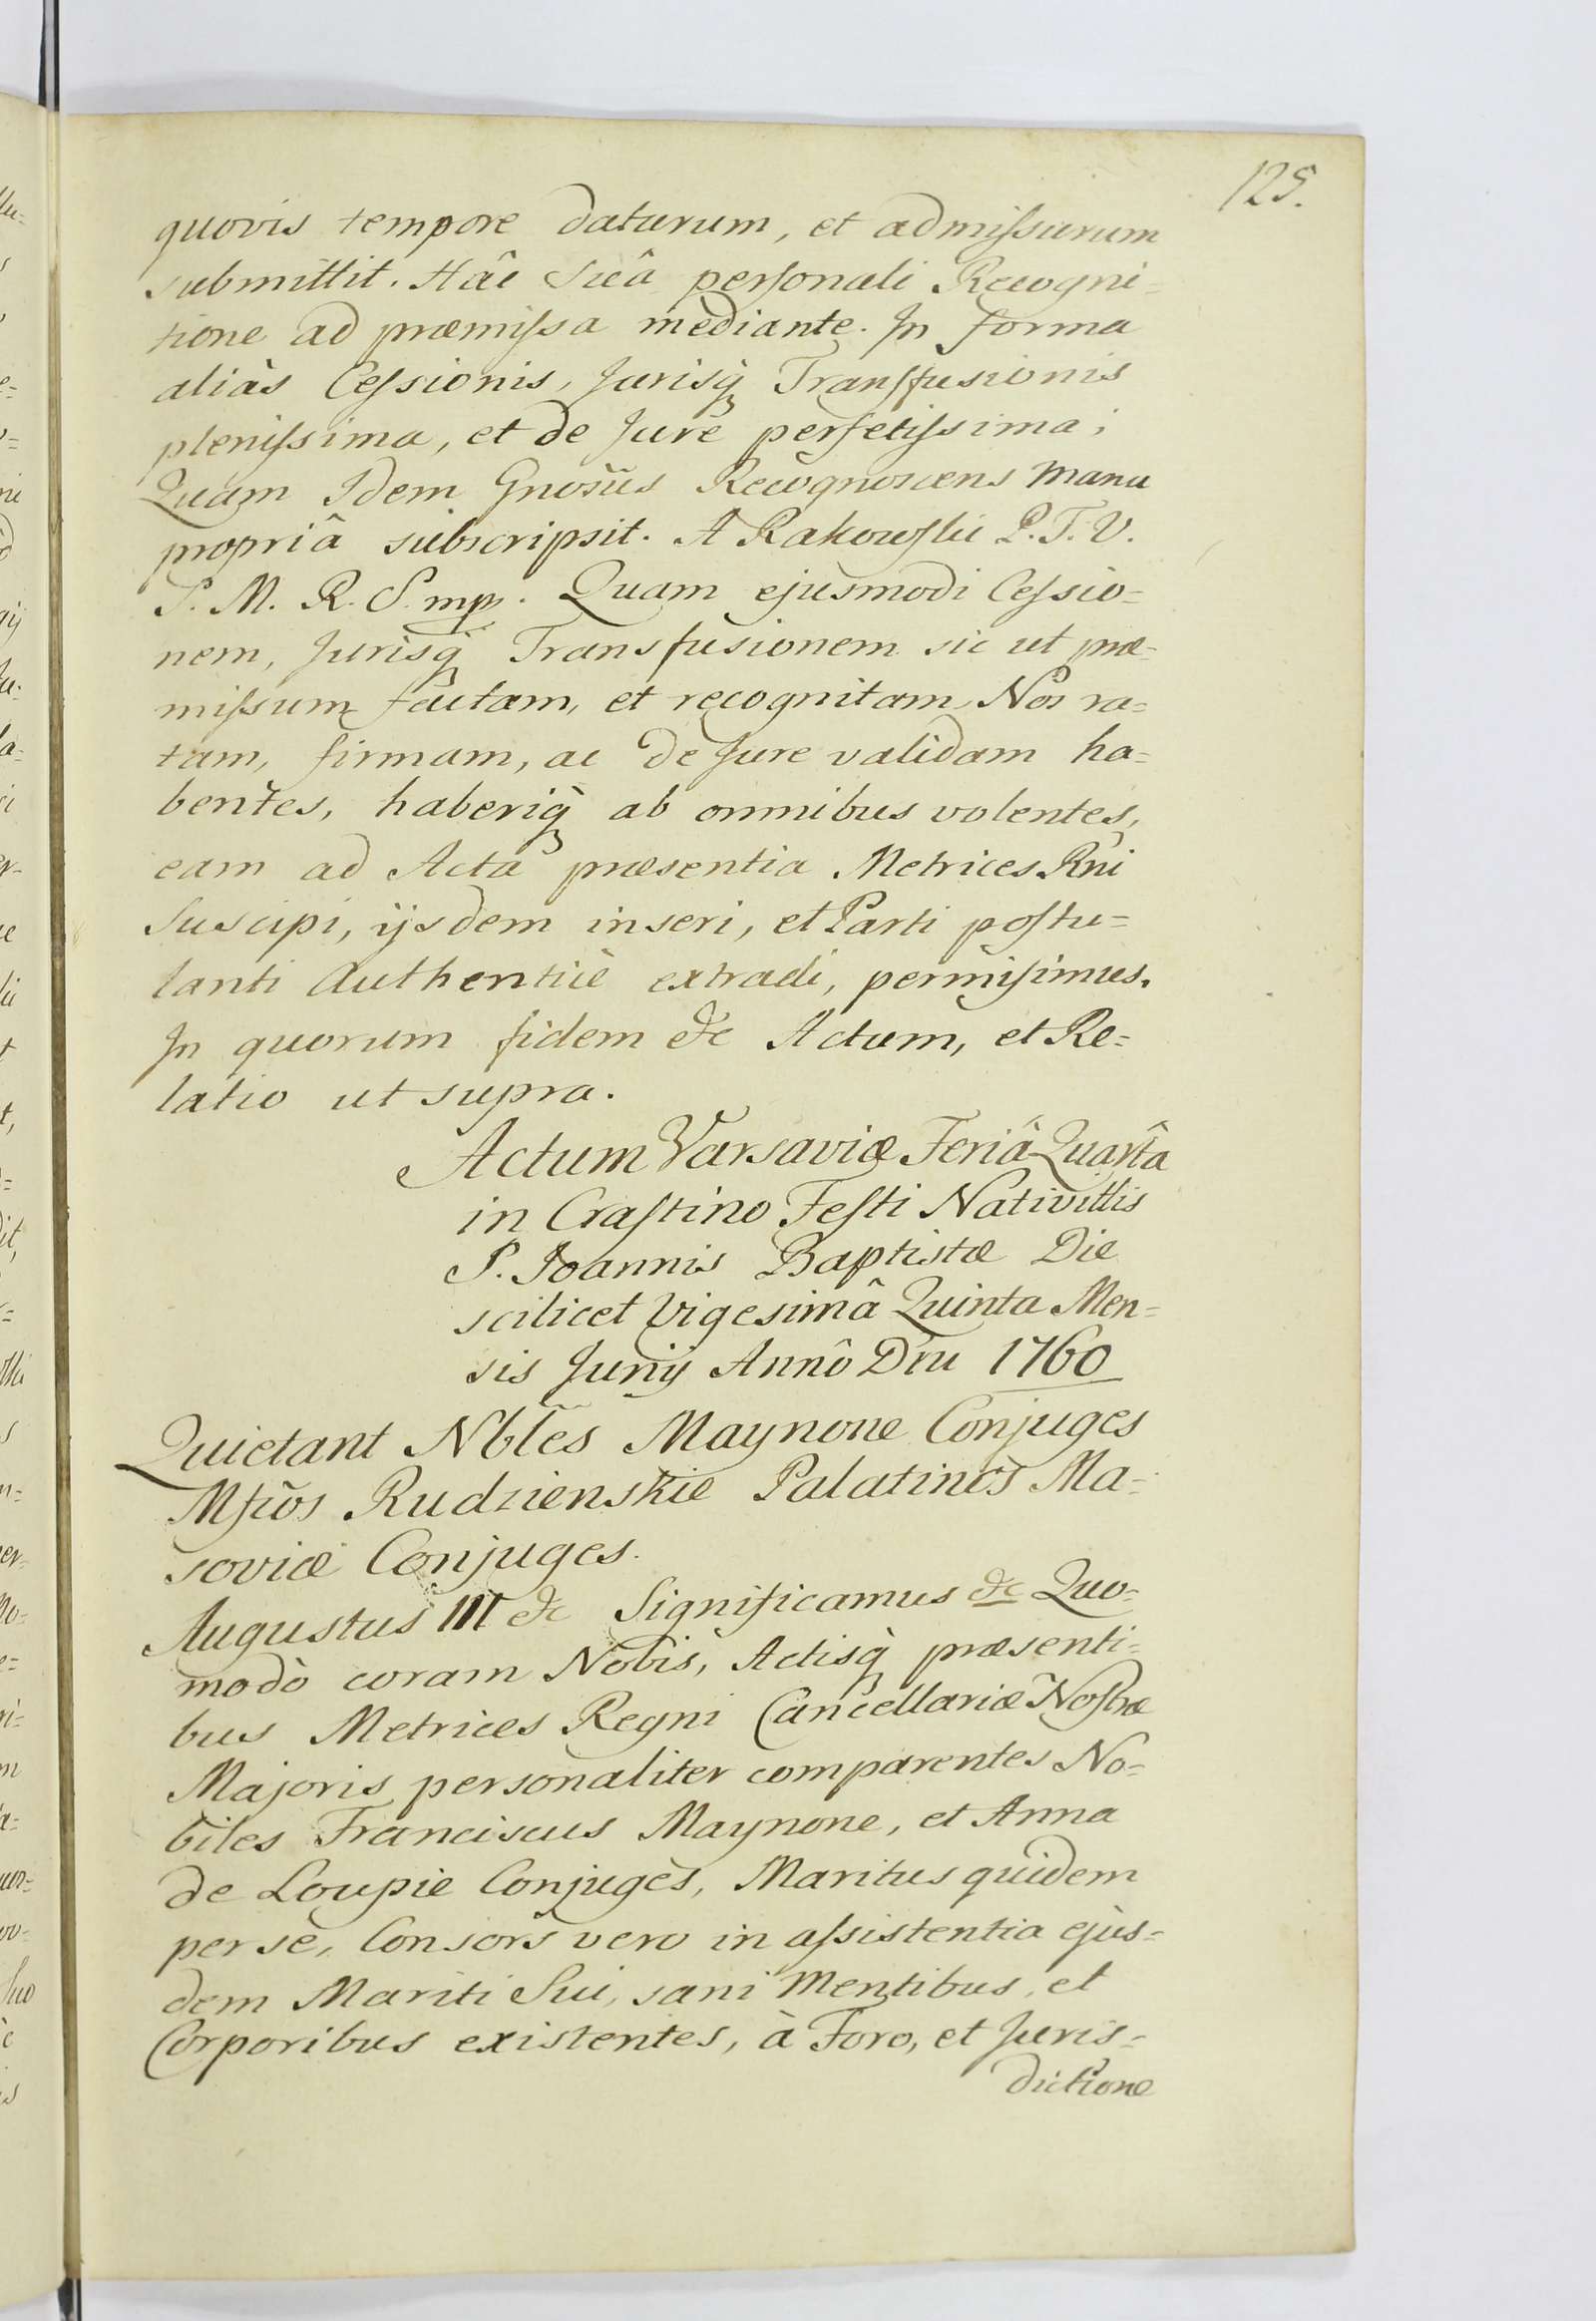 125.
quovis tempore daturum, et admiſsurum
submittit. Hâc Suâ perſonali Recogni=
tione ad præmiſsa mediante. In forma
aliàs Ceſsionis, Jurisq̀ Transfusionis
pleniſsima, et de Jure perfetiſsima;
Quam Idem Gnosũs Recognoscens Manu
propriâ subscripsit. A Rakowſki P. T. V.
S. M. R. S. mp. Quam ejusmodi Ceſsio=
nem, Jurisq̀ Transfusionem sic ut præ=
miſsum factam, et recognitam, Nos ra=
tam, firmam, ac de Jure validam ha=
bentes, haberiq̀ ab omnibus volentes,
eam ad Acta præsentia Metrices Rni
Suscipi, ijsdem inseri, et Parti poſtu=
lanti Authenticè extradi, permiſimus.
In quorum fidem &c Actum, et Re=
latio ut supra.
Actum Varsaviæ Feriâ Quartâ
in Craſtino Feſti Nativittis
S. Joannis Baptistæ Die
scilicet Vigesimâ Quinta Men=
sis Junij Annô Dni 1760
Quietant Nblẽs Maynone Conjuges
Mfcõs Rudzienskie Palatinos Ma=
soviæ Conjuges.
Augustus III &c Significamus &c Quo=
modò coram Nobis, Actisq̀ præsenti=
bus Metrices Regni Cancellariæ Noſtræ
Majoris personaliter comparentes No=
biles Franciscus Maynone, et Anna
de Loupie Conjuges, Maritus quidem
per se, Consors vero in aſsistentia ejus=
dem Mariti Sui, sani Mentibus, et
Corporibus existentes, à Foro, et Juris=
dictione